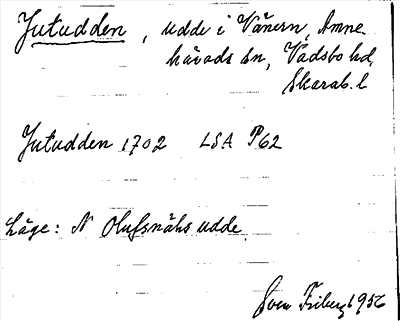 Jutudden, udde i Vänern, Amne-
härads sn, Vadsbo hd,
Skarab. l
Jutudden 1702 LSA P62
Läge: N Olufsnäbs udde
Sven Friberg 1956